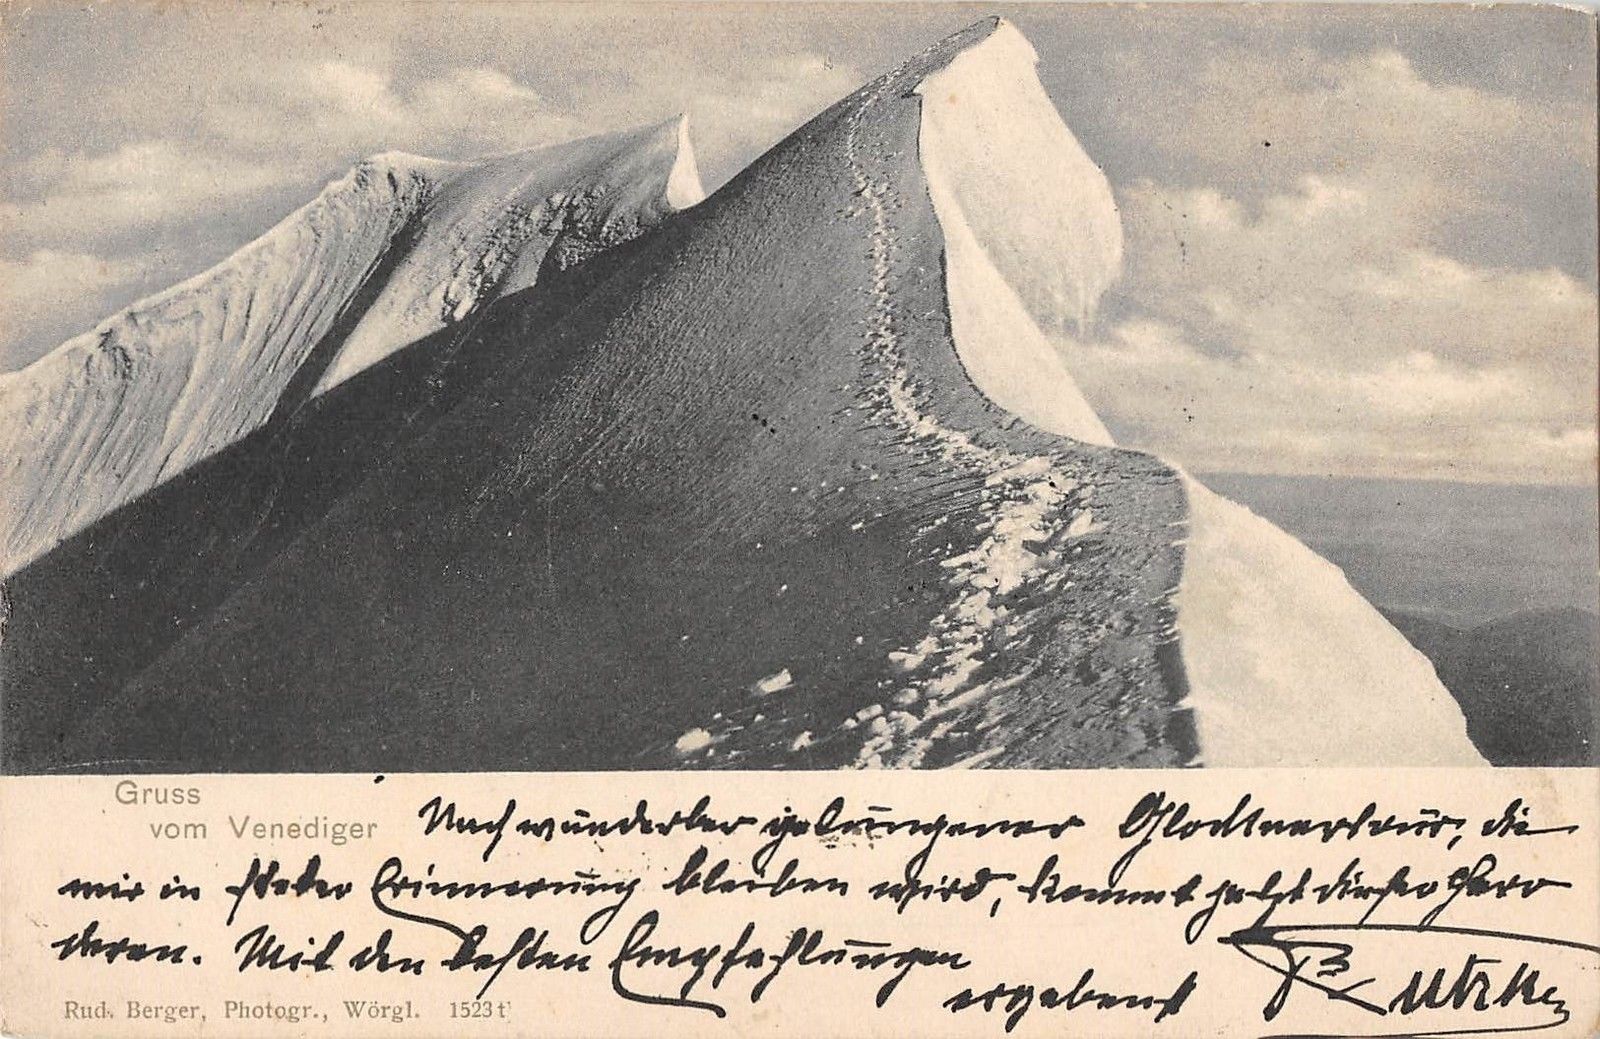 Gruss
vom Venediger
Nach wunderbar gelungener Glocknertour, die
mir in steter Erinnerung bleiben wird, kommt jetzt dieser Herr
deran. Mit den besten Empfehlungen
ergebenst
Rud. Berger, Photogr., Wörgl. 1523t